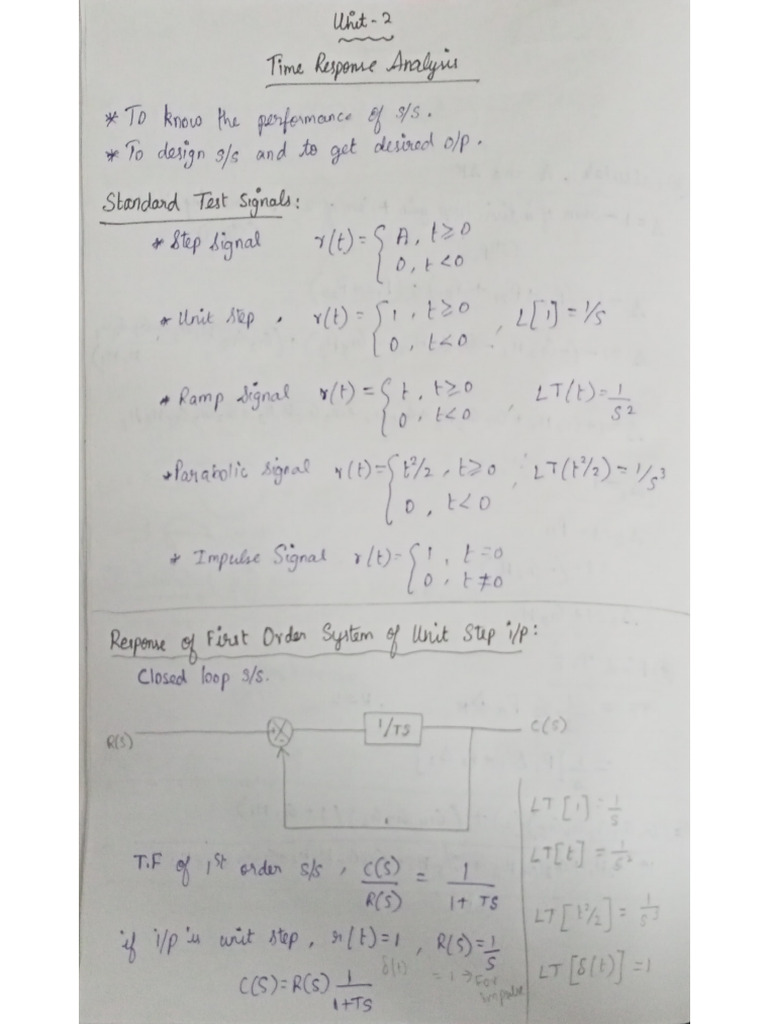 Unit - 2
Time Response Analysis
* To know the performance of s/s.
* To design s/s and to get desired o/p.
Standard Test Signals:
* Step Signal r(t) = { A, t ≥ 0
0, t < 0
* Unit Step, r(t) = { 1, t ≥ 0 , L[1] = 1/s
0, t < 0
* Ramp Signal r(t) = { t, t ≥ 0 , LT(t) = 1/S²
0, t < 0
* Parabolic Signal r(t) = { t²/2, t ≥ 0 , LT(t²/2) = 1/s³
0, t < 0
* Impulse Signal r(t) = { 1, t = 0
0, t ≠ 0
Response of First Order System of Unit Step i/p:
Closed loop s/s.
R(S) + - 1/TS C(S)
T.F of 1st order s/s, C(S)/R(S) = 1/(1 + TS)
if i/p is unit step, r(t) = 1, R(S) = 1/S
δ(t) = 1 → For impulse
C(S) = R(S) 1/(1+TS)
LT[1] = 1/s
LT[t] = 1/s²
LT[t²/2] = 1/s³
LT[δ(t)] = 1